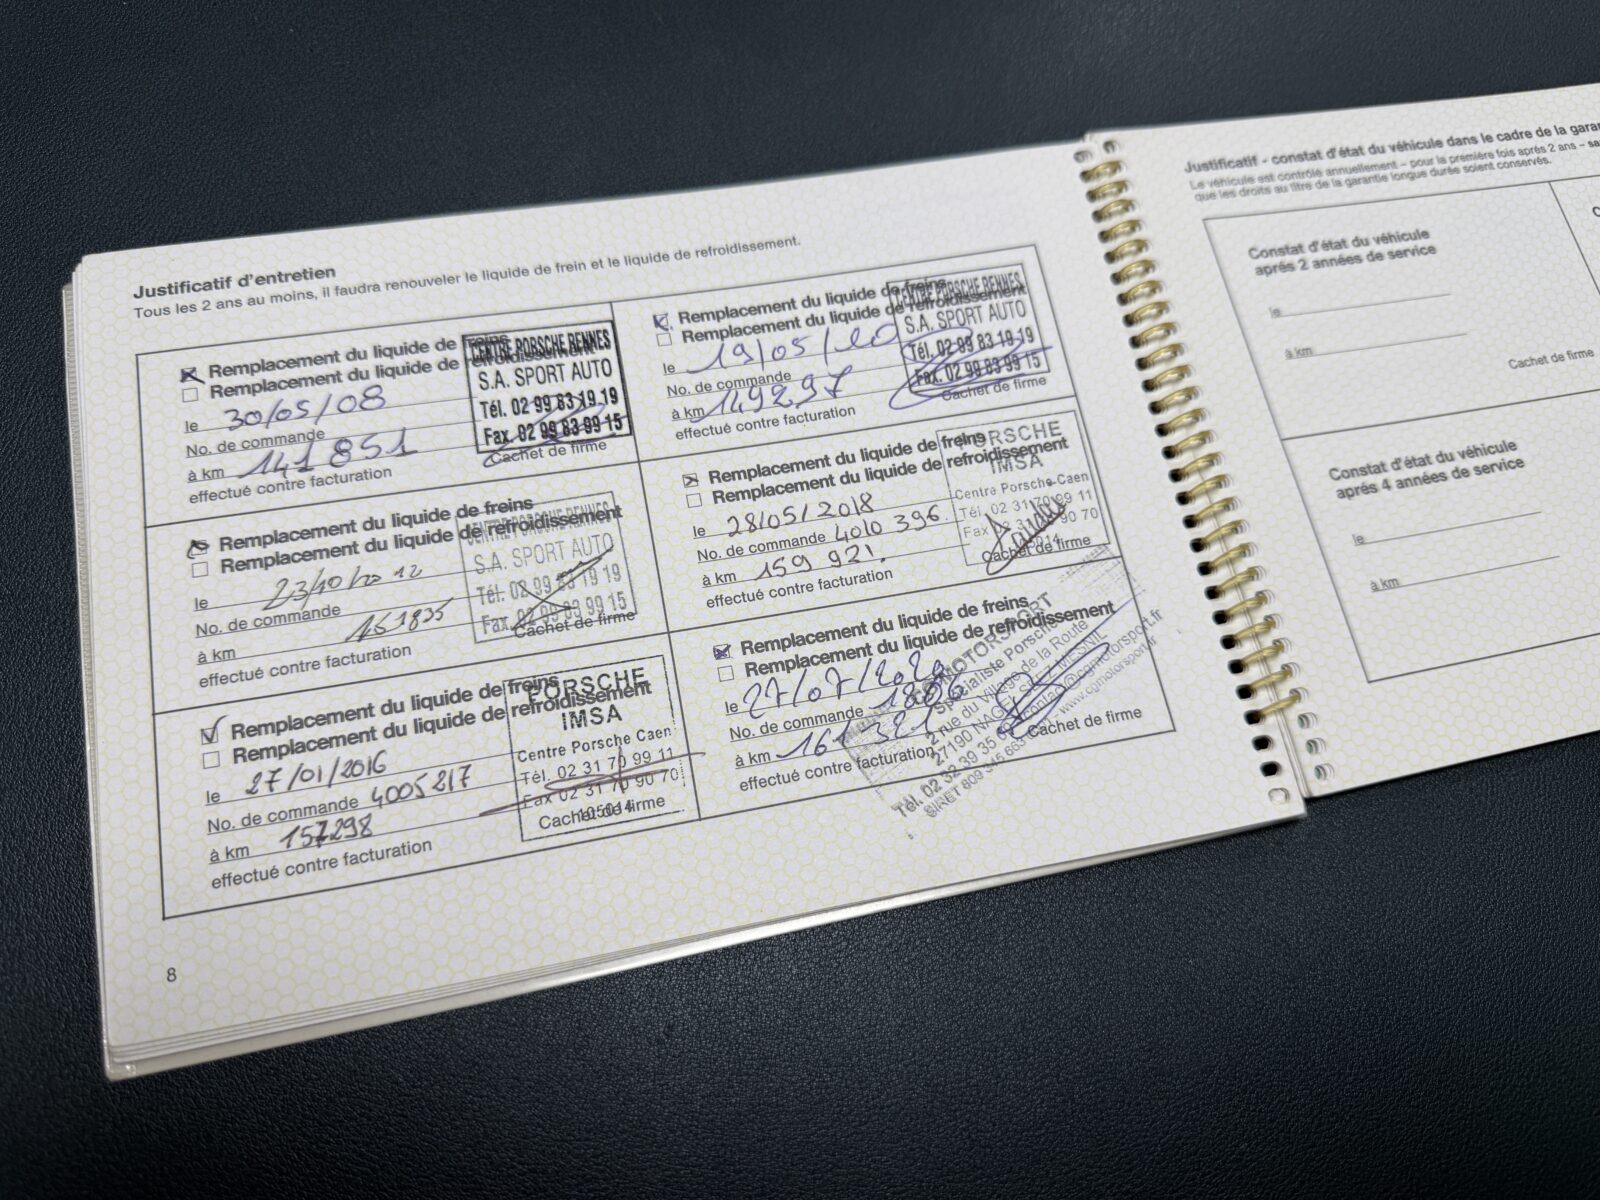 Justificatif d'entretien
Tous les 2 ans au moins, il faudra renouveler le liquide de frein et le liquide de refroidissement.
Remplacement du liquide de freins
Remplacement du liquide de refroidissement
le 30/05/08
No. de commande
à km 141 851
effectué contre facturation
CENTRE PORSCHE RENNES
S.A. SPORT AUTO
Tél. 02 99 83 19 19
Fax. 02 99 83 99 15
Cachet de firme
Remplacement du liquide de freins
Remplacement du liquide de refroidissement
le 23/10/2012
No. de commande
à km 151835
effectué contre facturation
CENTRE PORSCHE RENNES
S.A. SPORT AUTO
Tél. 02 99 83 19 19
Fax. 02 99 83 99 15
Cachet de firme
Remplacement du liquide de freins
Remplacement du liquide de refroidissement
le 27/01/2016
No. de commande 4005217
à km 157298
effectué contre facturation
PORSCHE
IMSA
Centre Porsche Caen
Tél. 02 31 70 99 11
Fax 02 31 70 90 70
105014
Cachet de firme
Remplacement du liquide de freins
Remplacement du liquide de refroidissement
le 19/05/10
No. de commande
à km 149297
effectué contre facturation
CENTRE PORSCHE RENNES
S.A. SPORT AUTO
Tél. 02 99 83 19 19
Fax. 02 99 83 99 15
Cachet de firme
Remplacement du liquide de freins
Remplacement du liquide de refroidissement
le 28/05/2018
No. de commande 4010 396.
à km 159 921.
effectué contre facturation
PORSCHE
IMSA
Centre Porsche Caen
Tél. 02 31 70 99 11
Fax 02 31 70 90 70
Cachet de firme
Remplacement du liquide de freins
Remplacement du liquide de refroidissement
le 27/07/202
No. de commande 1806
à km 161 321
effectué contre facturation
MOTORSPORT
Spécialiste Porsche
2 rue du Village de la Route
27190 NAGEL SEEZ MESNIL
Tél. 02 32 39 35
contact@cgmotorsport.fr
www.cgmotorsport.fr
SIRET 809 345 663
Cachet de firme
8
Justificatif - constat d'état du véhicule dans le cadre de la
Le véhicule est contrôlé annuellement – pour la première fois après 2 ans –
que les droits au titre de la garantie longue durée soient conservés.
Constat d'état du véhicule
après 2 années de service
le
à km
Cachet de firme
Constat d'état du véhicule
après 4 années de service
le
à km